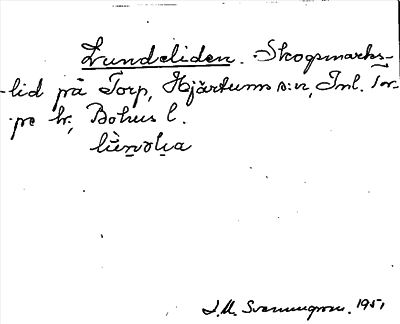 Lundeliden. Skogsmarks-
-lid på Torp, Hjärtums s:n, Inl. Tor-
pe hr, Bohus l.
J.M. Svenungsson. 1951